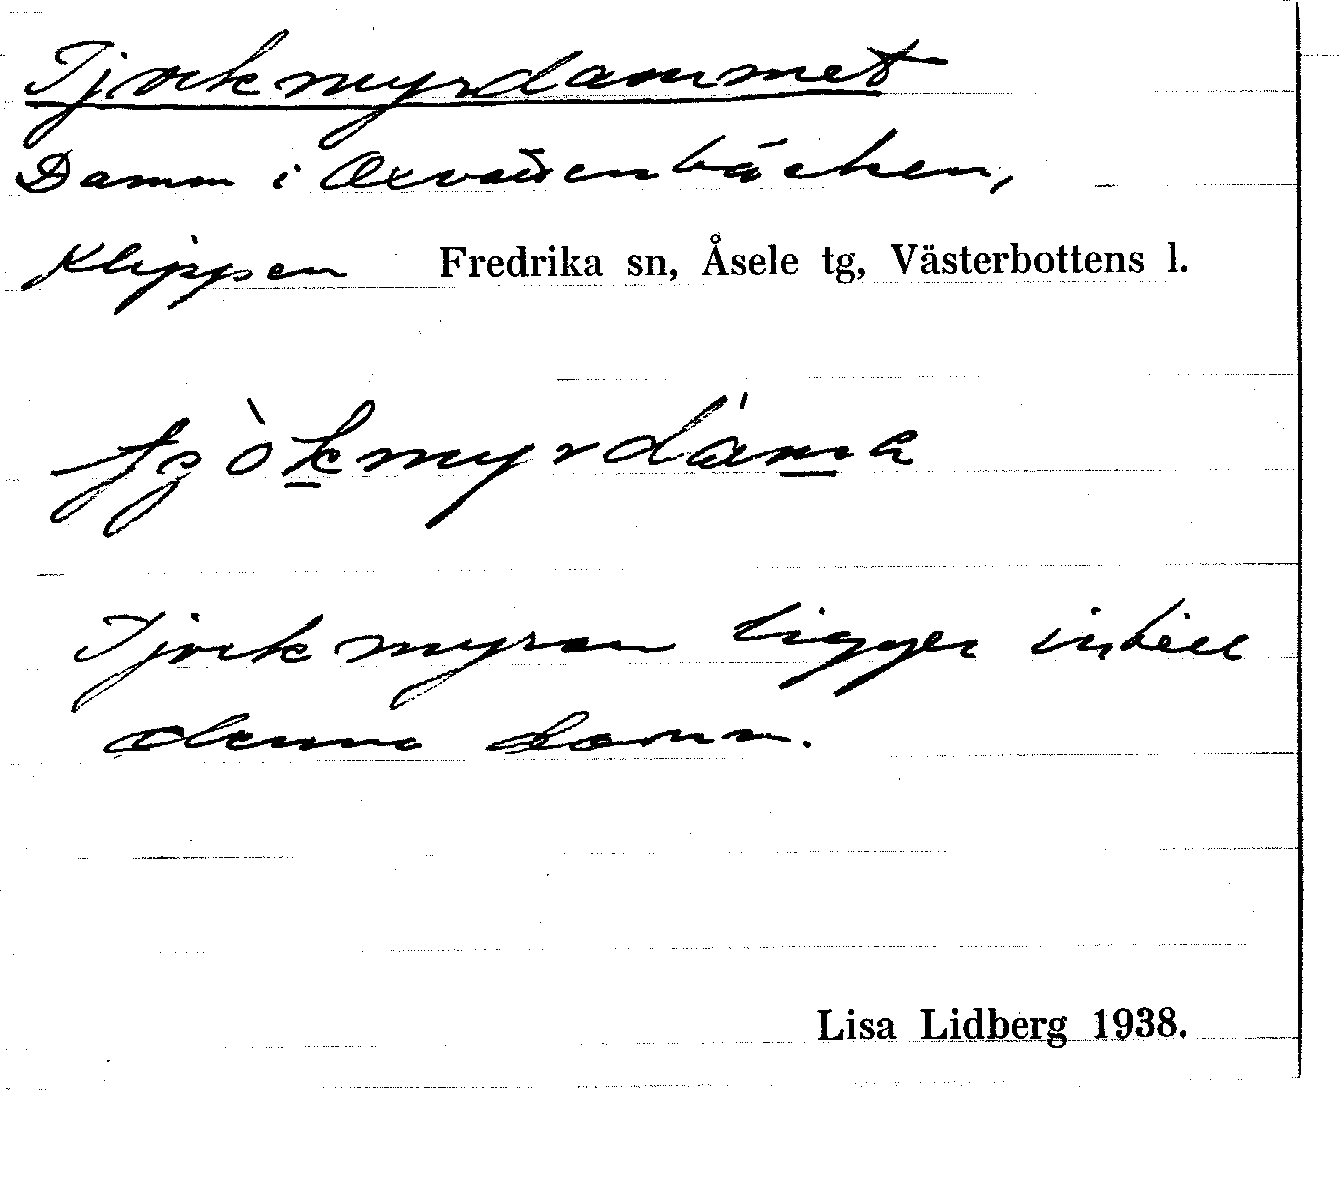 Tjockmyrdammet
Damm i Oxvattenbäcken,
Klippen Fredrika sn, Åsele tg, Västerbottens l.
tjòkmyrdám̲a
Tjockmyran ligger intill
denna damm.
Lisa Lidberg 1938.